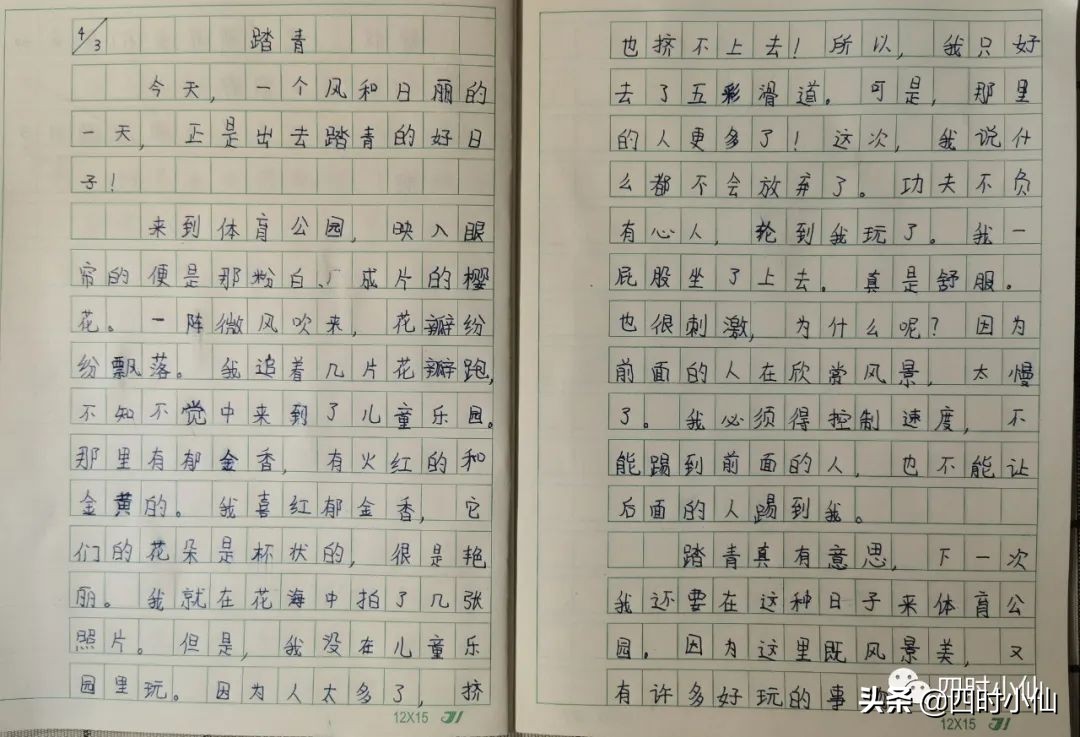 4/3 踏青
今天，一个风和日丽的
一天，正是出去踏青的好日
子！
来到体育公园，映入眼
帘的便是那粉白、成片的樱
花。一阵微风吹来，花瓣纷
纷飘落。我追着几片花瓣跑，
不知不觉中来到了儿童乐园。
那里有郁金香，有火红的和
金黄的。我喜红郁金香，它
们的花朵是杯状的，很是艳
丽。我就在花海中拍了几张
照片。但是，我没在儿童乐
园里玩。因为人太多了，挤
12X15
也挤不上去！所以，我只好
去了五彩滑道。可是，那里
的人更多了！这次，我说什
么都不会放弃了。功夫不负
有心人，轮到我玩了。我一
屁股坐了上去。真是舒服。
也很刺激，为什么呢？因为
前面的人在欣赏风景，太慢
了。我必须得控制速度，不
能踢到前面的人，也不能让
后面的人踢到我。
踏青真有意思，下一次
我还要在这种日子来体育公
园。因为这里既风景美，又
有许多好玩的事
四时小仙
头条@四时小仙
12X15